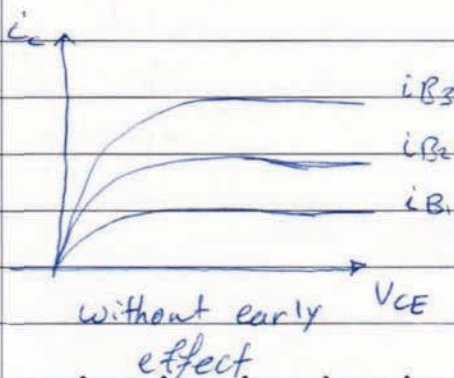 ic
iB3
iB2
iB1
VCE
without early
effect